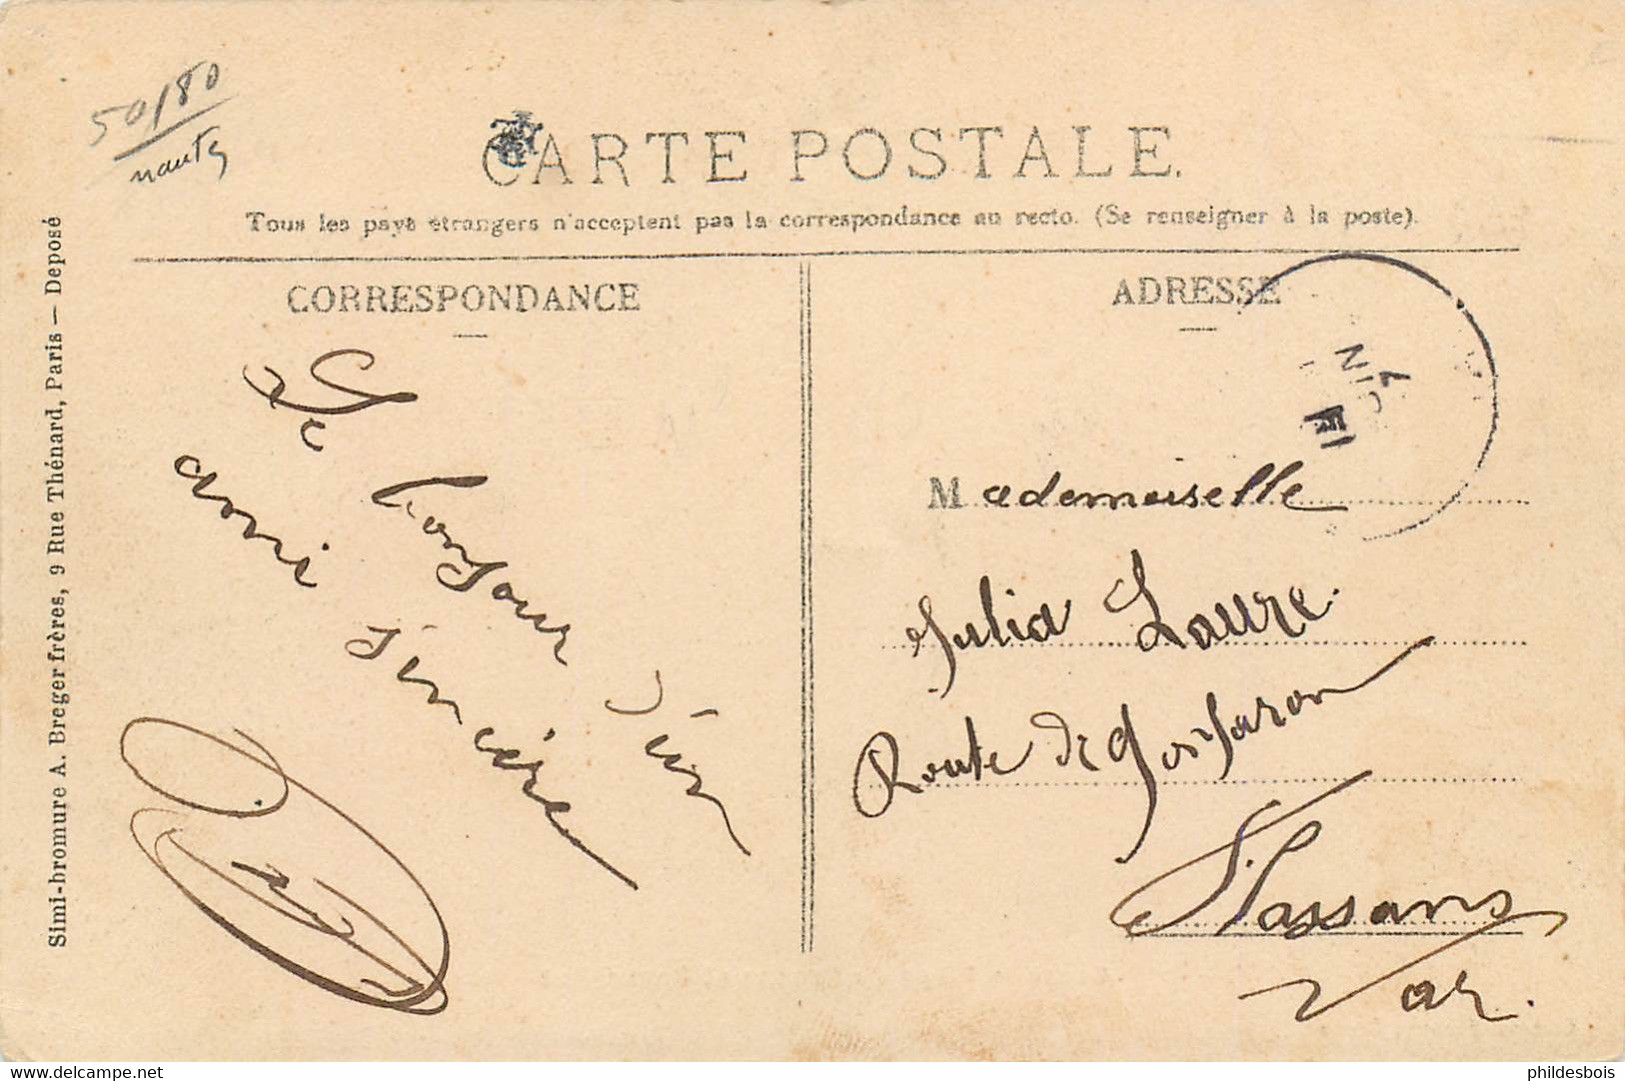 50/80
nante
CARTE POSTALE.
Tous les pays étrangers n'acceptent pas la correspondance au recto. (Se renseigner à la poste).
Simi-bromure A. Breger frères, 9 Rue Thénard, Paris — Deposé
CORRESPONDANCE
Le bonjour d'un
ami sincère
ADRESSE
Mademoiselle
Julia Laure.
Route de Gonfaron
Flassans
Var.
Delcampe.net
phildesbois